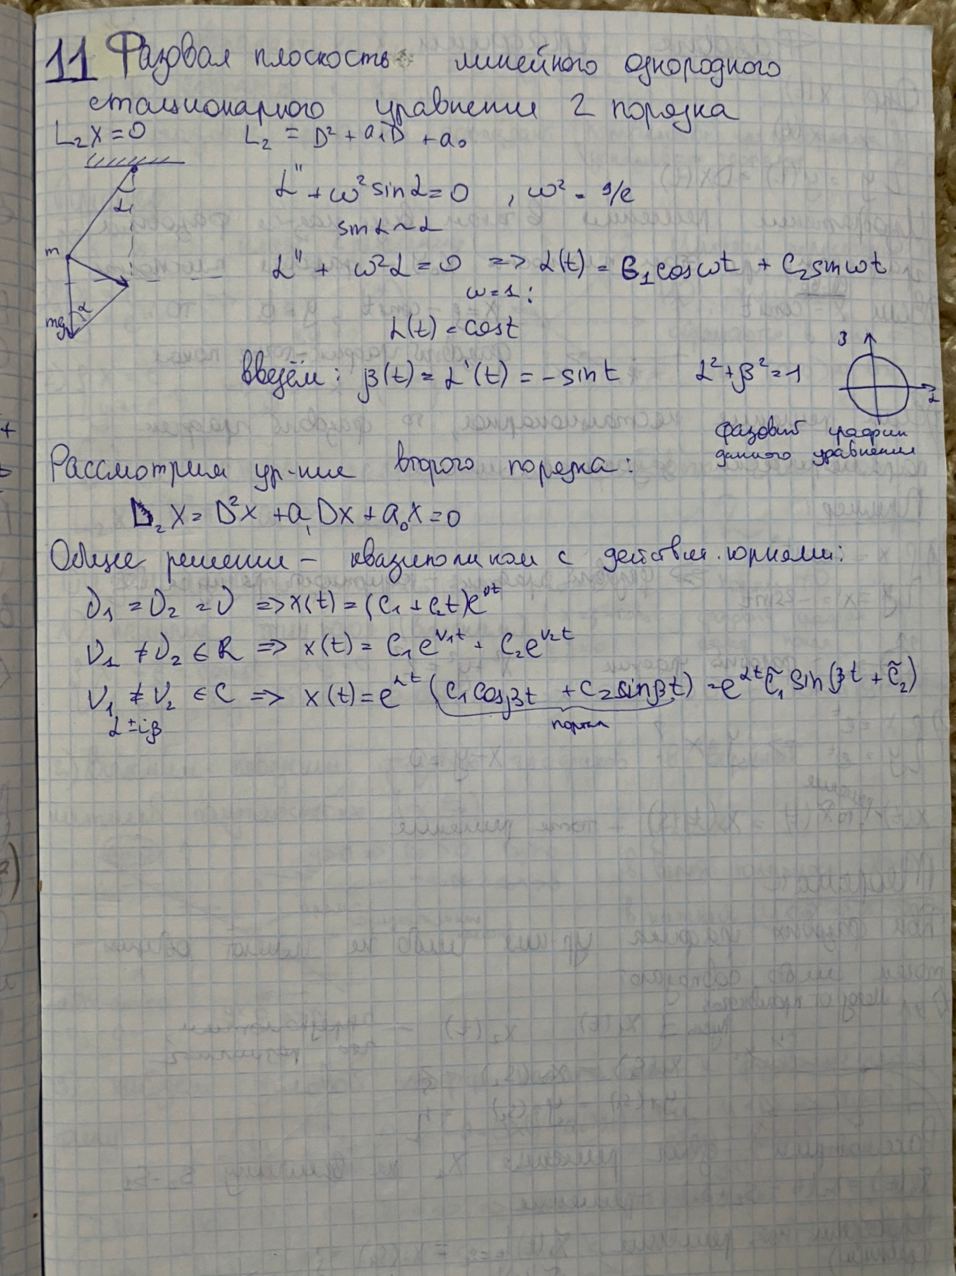 11 Фазовая плоскость линейного однородного
стационарного уравнение 2 порядка
L₂x = 0    L₂ = D² + a₁D + a₀
α'' + ω² sin α = 0 , ω² = g/ℓ
sin α ~ α
α'' + ω²α = 0 => α(t) = C₁ cos ωt + C₂ sin ωt
ω = 1 :
α(t) = cos t
введём: β(t) = α'(t) = - sin t    α² + β² = 1
α
m
mg
α
β
α
фазовый график
данного уравнения
Рассмотрим ур-ние второго порядка:
D₂x = D²x + a₁Dx + a₀x = 0
Общее решение - квазиполином с действит. корнями:
ν₁ = ν₂ = ν => x(t) = (C₁ + C₂t)e^νt
ν₁ ≠ ν₂ ∈ R => x(t) = C₁e^ν₁t + C₂e^ν₂t
ν₁ ≠ ν₂ ∈ C => x(t) = e^αt (C₁ cos βt + C₂ sin βt) = e^αt C̃₁ sin(βt + C̃₂)
α ± iβ